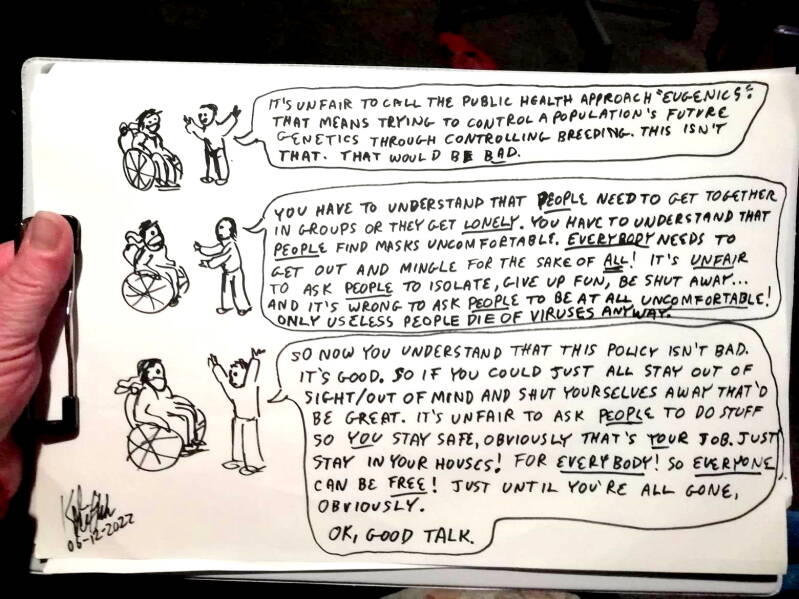 IT'S UNFAIR TO CALL THE PUBLIC HEALTH APPROACH "EUGENICS".
THAT MEANS TRYING TO CONTROL A POPULATION'S FUTURE
GENETICS THROUGH CONTROLLING BREEDING. THIS ISN'T
THAT. THAT WOULD BE BAD.
YOU HAVE TO UNDERSTAND THAT PEOPLE NEED TO GET TOGETHER
IN GROUPS OR THEY GET LONELY. YOU HAVE TO UNDERSTAND THAT
PEOPLE FIND MASKS UNCOMFORTABLE. EVERYBODY NEEDS TO
GET OUT AND MINGLE FOR THE SAKE OF ALL! IT'S UNFAIR
TO ASK PEOPLE TO ISOLATE, GIVE UP FUN, BE SHUT AWAY...
AND IT'S WRONG TO ASK PEOPLE TO BE AT ALL UNCOMFORTABLE!
ONLY USELESS PEOPLE DIE OF VIRUSES ANYWAY.
SO NOW YOU UNDERSTAND THAT THIS POLICY ISN'T BAD.
IT'S GOOD. SO IF YOU COULD JUST ALL STAY OUT OF
SIGHT/OUT OF MIND AND SHUT YOURSELVES AWAY THAT'D
BE GREAT. IT'S UNFAIR TO ASK PEOPLE TO DO STUFF
SO YOU STAY SAFE, OBVIOUSLY THAT'S YOUR JOB. JUST
STAY IN YOUR HOUSES! FOR EVERYBODY! SO EVERYONE
CAN BE FREE! JUST UNTIL YOU'RE ALL GONE,
OBVIOUSLY.
OK, GOOD TALK.
06-12-2022